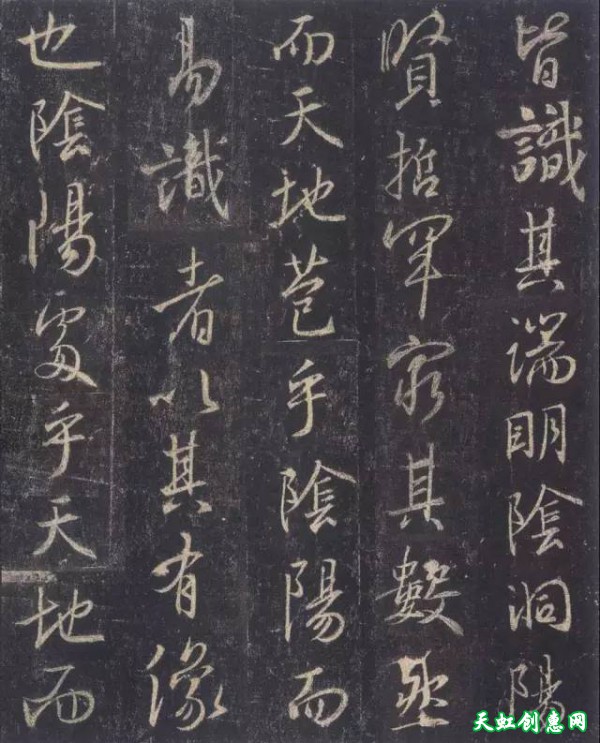 皆識其端明陰洞陽
賢哲罕窮其數然
而天地苞乎陰陽而
易識者以其有像
也陰陽處乎天地而
天虹创惠网